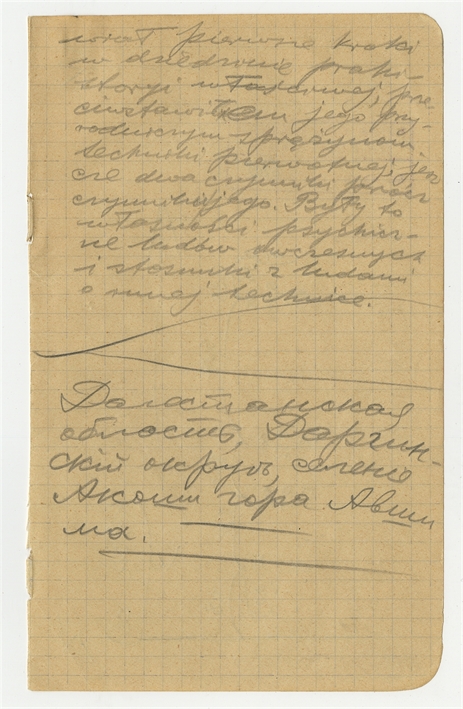 wiał pierwsze kroki
w dziedzinie prahi-
storyi właściwej, prze
ciwstawiłem jego przy-
rodniczym sprężynom
techniki pierwotnej, jesz
cze dwa czynniki prócz
czynnikujego. Były to
własności psychicz-
ne ludów ówczesnych
i stosunki z ludami
o innej technice.
Дагестанская
область, Даргин-
скій округъ, селеніе
Акоши гора Авши
ма.